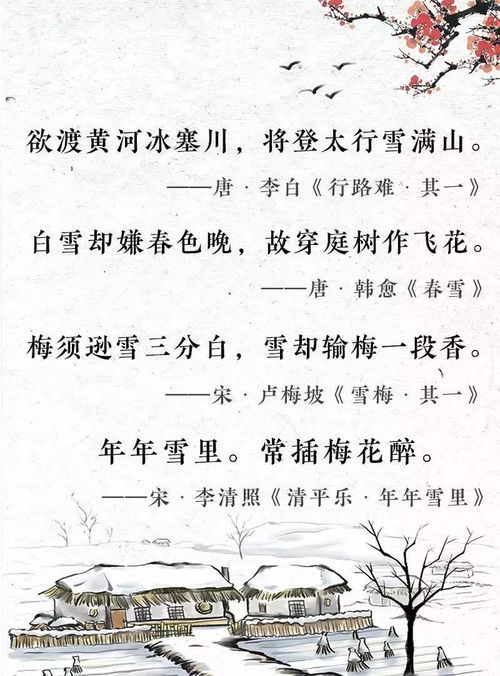 欲渡黄河冰塞川，将登太行雪满山。
——唐·李白《行路难·其一》
白雪却嫌春色晚，故穿庭树作飞花。
——唐·韩愈《春雪》
梅须逊雪三分白，雪却输梅一段香。
——宋·卢梅坡《雪梅·其一》
年年雪里。常插梅花醉。
——宋·李清照《清平乐·年年雪里》